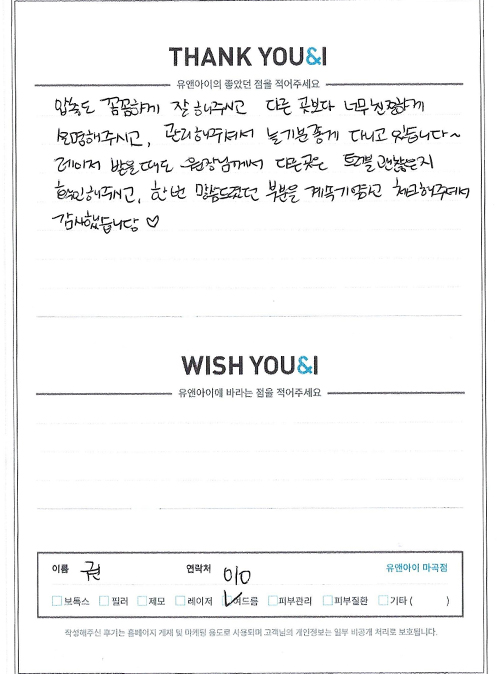 THANK YOU&I
유앤아이의 좋았던 점을 적어주세요
압출도 꼼꼼하게 잘 해주시고 다른 곳보다 너무 친절하게
설명해주시고, 관리해주셔서 늘 기분좋게 다니고 있습니다~
레이저 받을때도 원장님께서 다른곳은 트러블 괜찮은지
확인해주시고, 한번 말씀드렸던 부분을 계속기억하고 체크해주셔서
감사했습니당 ♡
WISH YOU&I
유앤아이에 바라는 점을 적어주세요
이름 권 연락처 010 유앤아이 마곡점
보톡스 필러 제모 레이저 여드름 피부관리 피부질환 기타 ( )
작성해주신 후기는 홈페이지 게재 및 마케팅 용도로 사용되며 고객님의 개인정보는 일부 비공개 처리로 보호됩니다.